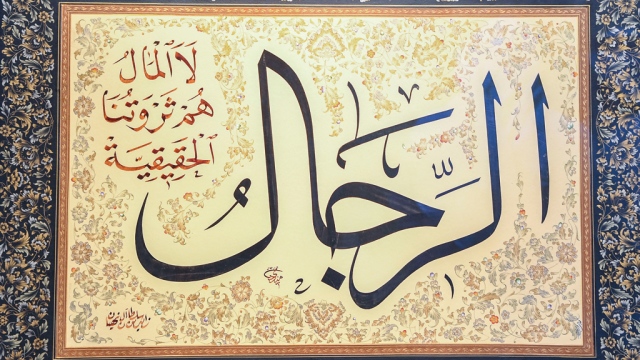 الرّجَالُ
لَا الْمَالُ
هُمْ ثَرْوَتُنَا
الْحَقِيقِيَّةُ